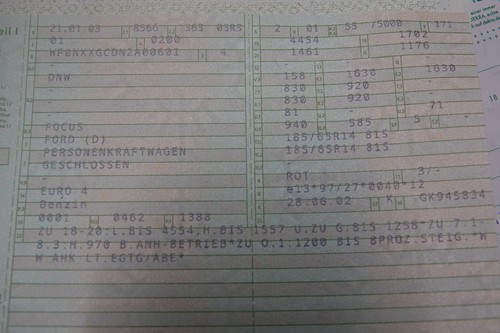 21.01.03 8566 363 03RS
01 0200
WF0NXXGCDN2A00601 4
-
DNW
-
-
-
FOCUS
FORD (D)
PERSONENKRAFTWAGEN
GESCHLOSSEN
-
EURO 4
Benzin
0001 0462 1388
2 01 55 /5000 171
4454 1702
1461 1176
-
158 1636 1630
830 920
830 920
81 - 71
940 585 5
185/65R14 81S
185/65R14 81S
-
ROT 3/-
e13*97/27*0040*12
28.06.02 K GK945834
ZU 18-20:L.BIS 4554,H.BIS 1557 U.ZU G:BIS 1258*ZU 7.1-
8.3:H.970 B.ANH-BETRIEB*ZU O.1:1200 BIS 8PROZ.STEIG.*W
W.AHK LT.EGTG/ABE*